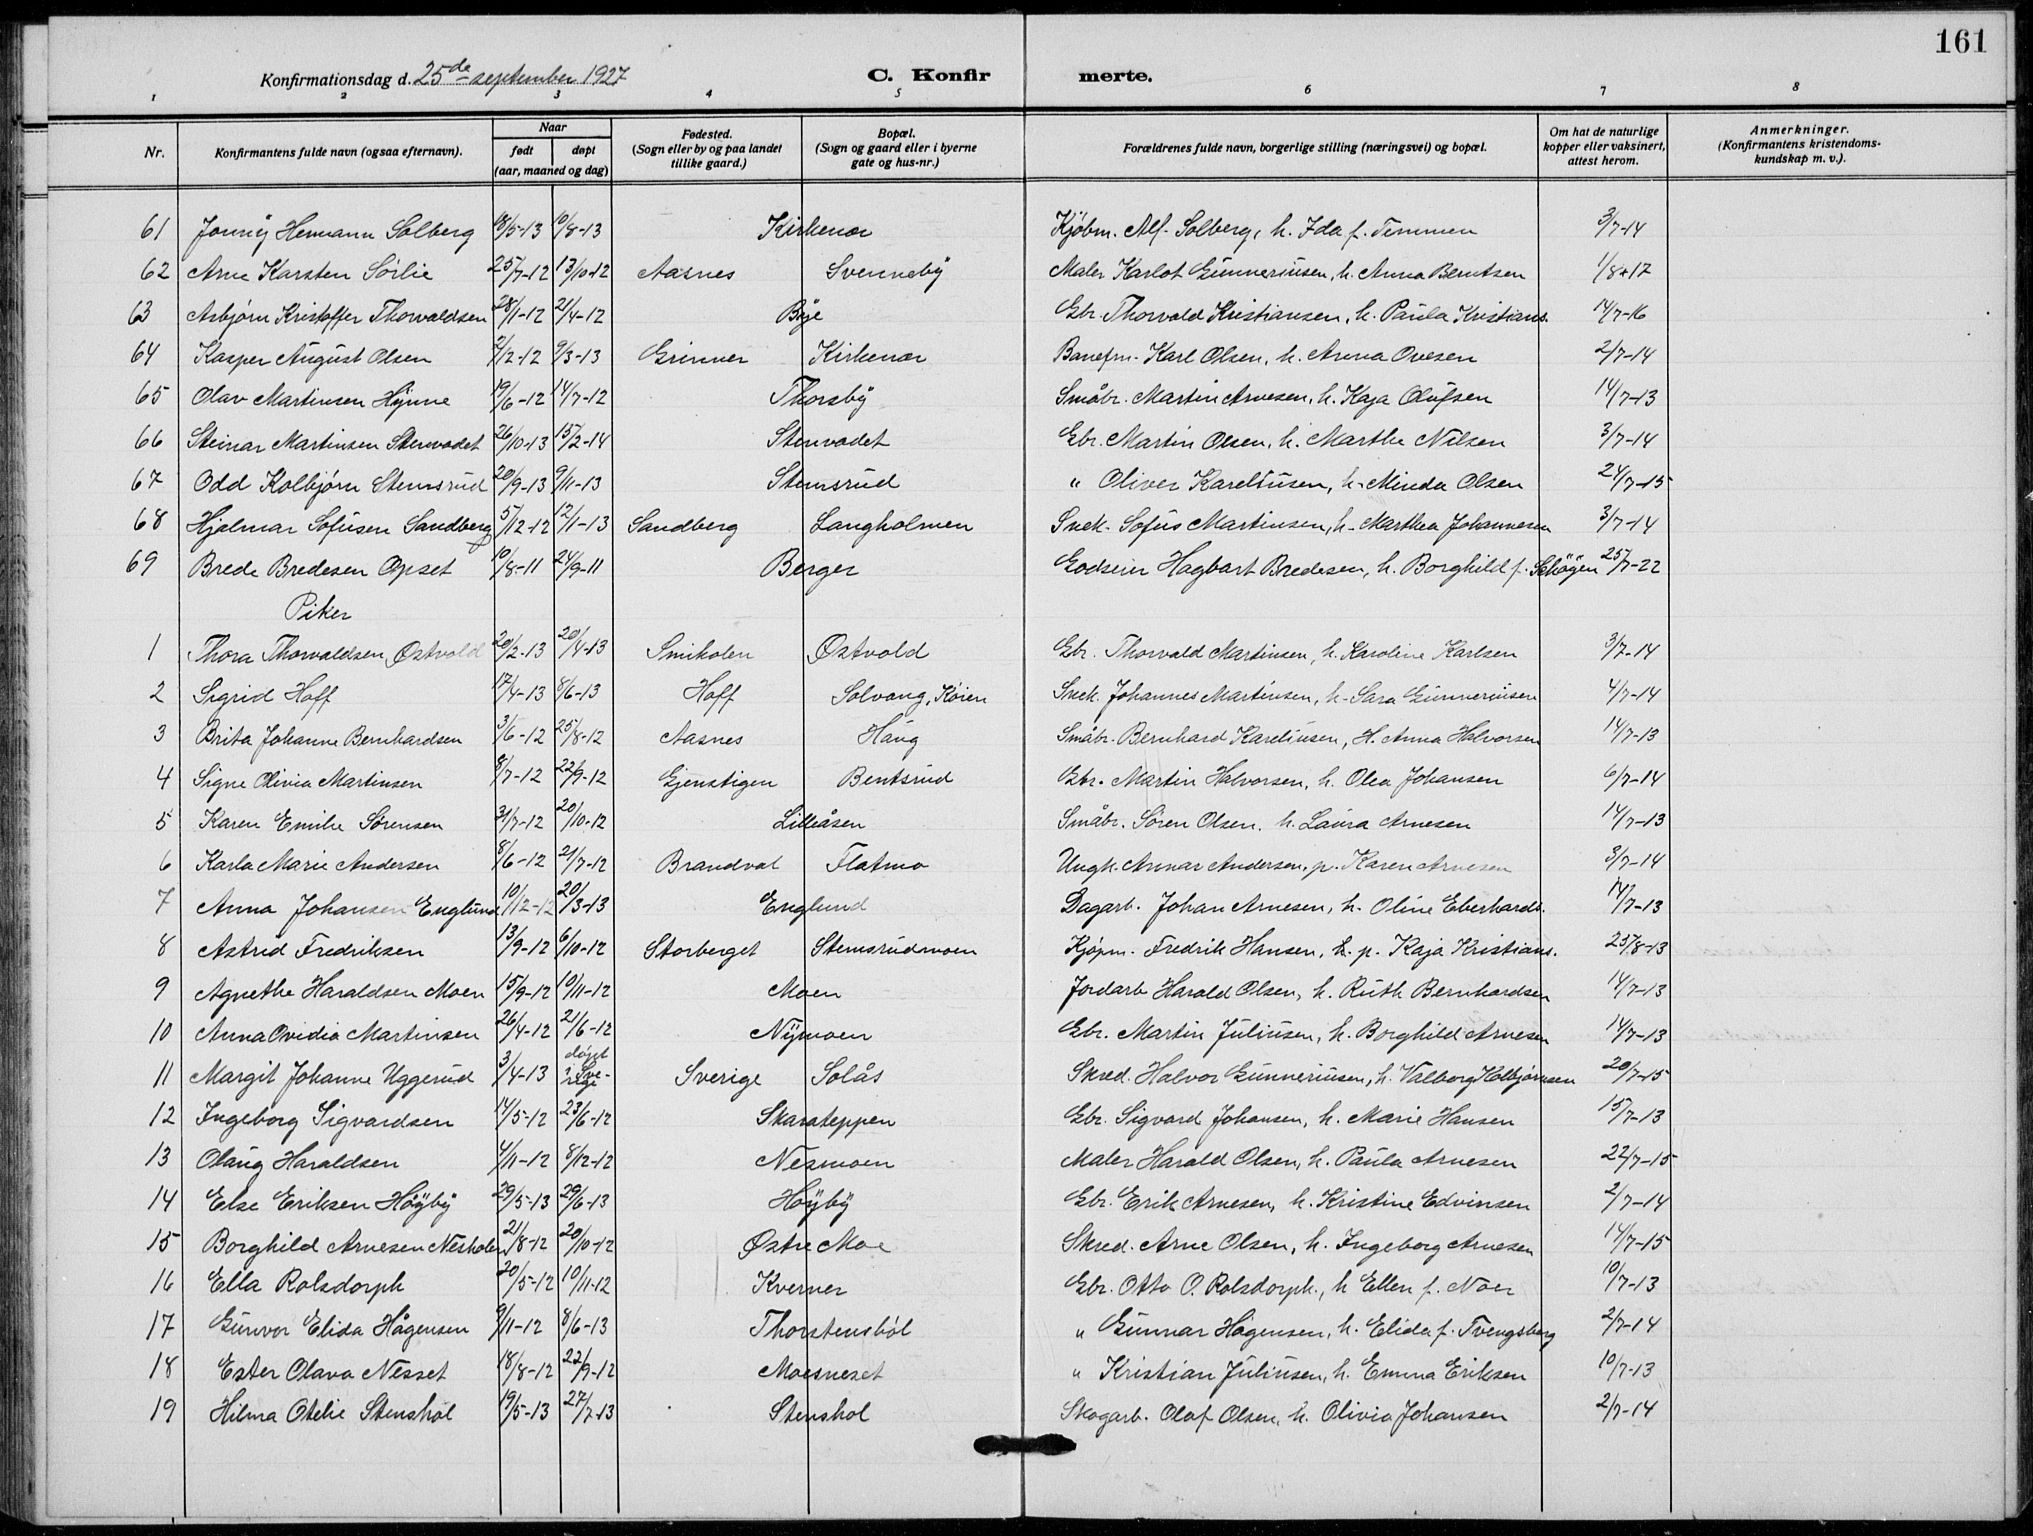 161
Konfirmationsdag d. 25de september 1927 C. Konfirmerte.
1 2 3 4 5 6 7 8
Nr. Konfirmantens fulde navn (ogsaa efternavn). Naar født døpt (aar, maaned og dag) Fødested. (Sogn eller by og paa landet tillike gaard.) Bopæl. (Sogn og gaard eller i byerne gate og hus-nr.) Forældrenes fulde navn, borgerlige stilling (næringsvei) og bopæl. Om hat de naturlige kopper eller vaksinert, attest herom. Anmerkninger. (Konfirmantens kristendoms-kundskap m. v.).
61 Jonny Hermann Solberg 18/5-13 10/8-13 Kirkenær Kjøbm. Alf Solberg, h. Ida f. Timmen 3/7-14
62 Arne Karsten Sørlie 25/7-12 13/10-12 Aasnes Svenneby Maler Karlot Gunneriusen, h. Anna Berntsen 1/8-17
63 Asbjørn Kristoffer Thorvaldsen 28/1-12 21/4-12 Bye Gbr. Thorvald Kristiansen, h. Paula Kristians. 14/7-16
64 Kasper August Olsen 2/12-12 9/3-13 Grinner Kirkenær Banefm. Karl Olsen, h. Anna Ovesen 2/7-14
65 Olav Martinsen Hynne 19/6-12 14/7-12 Thorsby Småbr. Martin Arnesen, h. Kaja Olufsen 14/7-13
66 Steinar Martinsen Stenvadet 26/10-13 15/2-14 Stenvadet Gbr. Martin Olsen, h. Marthe Nilsen 3/7-14
67 Odd Kolbjørn Stemsrud 20/9-13 9/11-13 Stemsrud " Oliver Kareliusen, h. Minda Olsen 24/7-15
68 Hjalmar Sofusen Sandberg 5/12-12 12/1-13 Sandberg Langholmen Snek. Sofus Martinsen, h. Marthea Johannesen 3/7-14
69 Brede Bredesen Opset 10/8-11 24/9-11 Berger Godseier Hagbart Bredesen, h. Borghild f. Schöyen 25/7-22
Piker
1 Thora Thorvaldsen Østvold 20/2-13 20/4-13 Smikolen Østvold Gbr. Thorvald Martinsen, h. Karoline Karlsen 3/7-14
2 Sigrid Hoff 17/4-13 8/6-13 Hoff Solvang, Køien Snek. Johannes Martinsen, h. Sara Gunneriusen 4/7-14
3 Brita Johanne Bernhardsen 3/6-12 25/8-12 Aasnes Haug Småbr. Bernhard Kareliusen, H. Anna Halvorsen 14/7-13
4 Signe Olivia Martinsen 8/7-12 22/9-12 Gjenstigen Bentsrud Gbr. Martin Halvorsen, h. Olea Johansen 6/7-14
5 Karen Emilie Sørensen 31/7-12 20/10-12 Lilleåsen Småbr. Søren Olsen, h. Laura Arnesen 14/7-13
6 Karla Marie Andersen 8/6-12 21/7-12 Brandval Flatmo Ungk. Annar Andersen, p. Karen Arnesen 3/7-14
7 Anna Johansen Englund 10/12-12 20/3-13 Englund Dagarb. Johan Arnesen, h. Oline Eberhards. 14/7-13
8 Astrid Fredriksen 13/9-12 6/10-12 Storberget Stemsrudmoen Kjøpm. Fredrik Hansen, h. p. Kaja Kristians. 25/8-13
9 Agnethe Haraldsen Moen 15/9-12 10/11-12 Moen Jordarb. Harald Olsen, h. Ruth Bernhardsen 14/7-13
10 Anna Ovidia Martinsen 26/4-12 21/6-12 Nymoen Gbr. Martin Juliusen, h. Borghild Arnesen 14/7-13
11 Margit Johanne Uggerud 3/4-13 døpt i Sverige Sverige Solås Skred. Halvor Gunneriusen, h. Valborg Kolbjørnsen 20/7-15
12 Ingeborg Sigvardsen 14/5-12 23/6-12 Skarateppen Gbr. Sigvard Johansen, h. Marie Hansen 15/7-13
13 Olaug Haraldsen 4/11-12 8/12-12 Nesmoen Maler Harald Olsen, h. Paula Arnesen 22/7-15
14 Else Eriksen Høyby 29/5-13 29/6-13 Høyby Gbr. Erik Arnesen, h. Kristine Edvinsen 2/7-14
15 Borghild Arnesen Nesholen 21/8-12 20/10-12 Østre Moe Skred. Arne Olsen, h. Ingeborg Arnesen 14/7-15
16 Ella Rolsdorph 20/5-12 10/11-12 Kverner Gbr. Otto O. Rolsdorph, h Ellen f. Noer 10/7-13
17 Gunvor Elida Hågensen 9/11-12 8/6-13 Thorstensbøl " Gunnar Hågensen, h. Elida f. Tvengsberg 2/7-14
18 Ester Olava Nesset 18/8-12 22/9-12 Moesneset " Kristian Juliusen, h. Emma Eriksen 10/7-13
19 Hilma Otelie Stenshol 19/5-13 27/7-13 Stenshol Skogarb. Olaf Olsen, h. Olivia Johansen 2/7-14